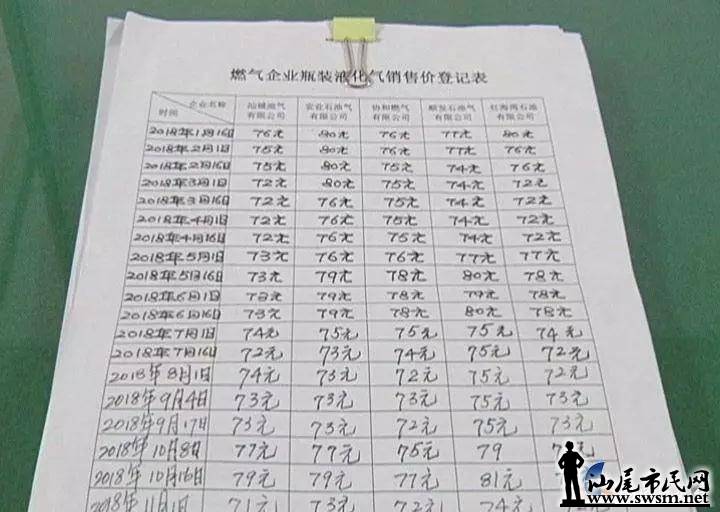 燃气企业瓶装液化气销售价登记表
企业名称 时间 汕城油气有限公司 农业石油气有限公司 协和燃气有限公司 顺发石油气有限公司 红海湾石油有限公司
2018年1月16日 76元 80元 76元 77元 80元
2018年2月1日 75元 80元 76元 77元 76元
2018年2月16日 75元 80元 75元 74元 76元
2018年3月1日 72元 80元 75元 74元 72元
2018年3月16日 72元 76元 75元 74元 72元
2018年4月1日 72元 76元 75元 74元 72元
2018年4月16日 72元 76元 75元 74元 72元
2018年5月1日 73元 76元 76元 77元 77元
2018年5月16日 73元 79元 78元 80元 78元
2018年6月1日 73元 79元 78元 79元 78元
2018年6月16日 73元 79元 78元 80元 78元
2018年7月1日 74元 75元 75元 75元 74元
2018年7月16日 72元 73元 74元 75元 72元
2018年8月1日 74元 73元 72元 75元 72元
2018年9月4日 73元 73元 73元 75元 73元
2018年9月17日 73元 73元 72元 75元 73元
2018年10月8日 77元 77元 75元 79
2018年10月16日 79元 79元 77元 81元
2018年11月1日 71元 73元 72元 74元
汕尾市民网
www.swsm.net